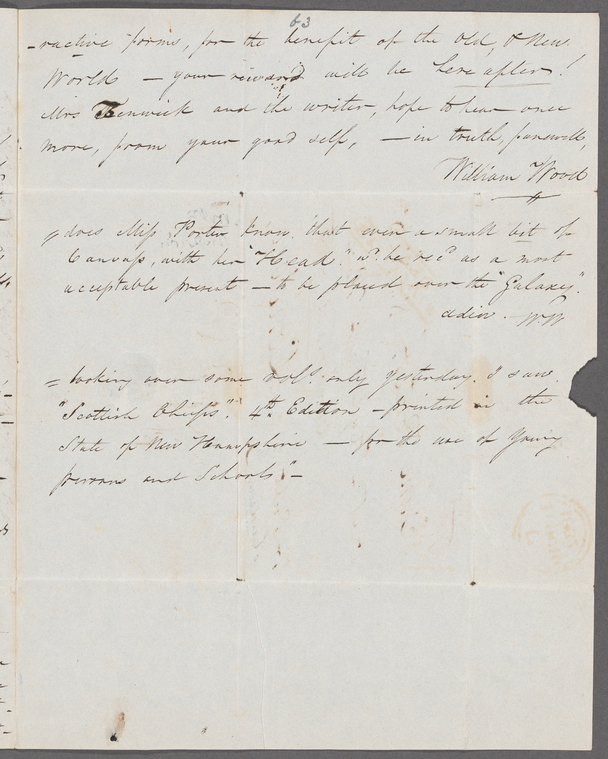 63
-ractive forms, for the benefit of the Old, & New
World — your reward will be hereafter!
Mrs Fenwick and the writer, hope to hear once
more, from your good self, — in truth, farewell,
William Wood
= does Miss Porter know, that even a small bit of
Canvass, with her "Head" wd be recd as a most
acceptable present — to be placed over the "Galaxy".
adieu. — WW
= looking over some vols. only yesterday. I saw
"Scottish Chiefs". 4th Edition — printed in the
State of New Hampshire — for the use of Young
persons and Schools" —